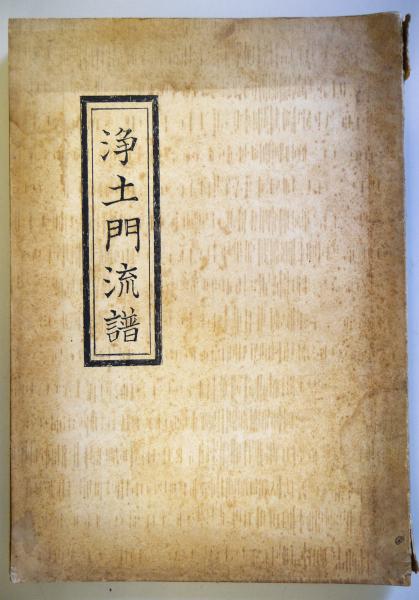 浄土門流譜